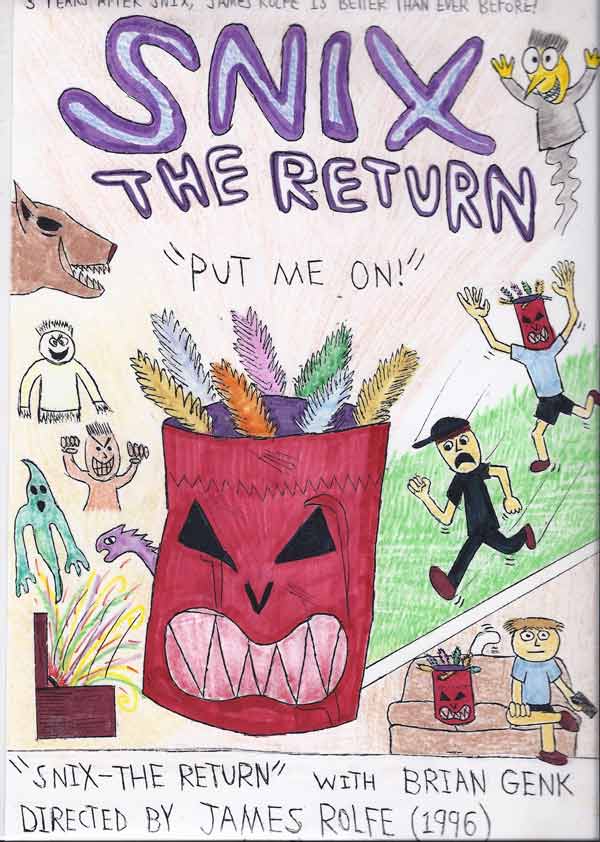 3 YEARS AFTER SNIX, JAMES ROLFE IS BETTER THAN EVER BEFORE!
SNIX
THE RETURN
"PUT ME ON!"
"SNIX-THE RETURN" WITH BRIAN GENK
DIRECTED BY JAMES ROLFE (1996)